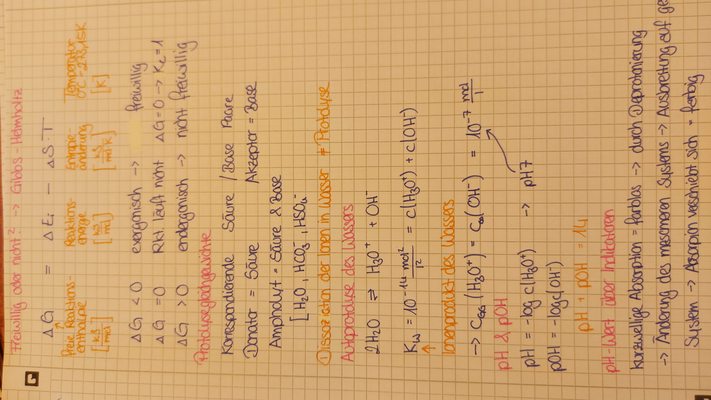 Freiwillig oder nicht? -> Gibbs-Helmholtz
ΔG = ΔEi - ΔS·T
freie Reaktions-enthalpie [kJ/mol] Reaktions-energie [kJ/mol] Entropie änderung [kJ/mol·K] Temperatur 0°C = 273,15K [K]
ΔG < 0 exergonisch -> freiwillig
ΔG = 0 Rkt läuft nicht ΔG = 0 -> Kc = 1
ΔG > 0 endergonisch -> nicht freiwillig
Protolysegleichgewichte
Korrespondierende Säure / Base Paare
Donator = Säure Akzeptor = Base
Ampholyt = Säure & Base
[H₂O, HCO₃⁻, HSO₄⁻
Dissoziation der Ionen in Wasser ≠ Protolyse
Autoprotolyse des Wassers
2H₂O ⇌ H₃O⁺ + OH⁻
Kw = 10⁻¹⁴ mol²/l² = c(H₃O⁺) + c(OH⁻)
↑
Ionenprodukt des Wassers
-> (H₃O⁺) = (OH⁻) = 10⁻⁷ mol/l
pH & pOH
pH = -log c(H₃O⁺) -> pH7
pOH = -log c(OH⁻)
pH + pOH = 14
pH-Wert über Indikatoren
kurzwellige Absorption = farblos -> durch Deprotonierung
-> Änderung des mesomeren Systems -> Ausbreitung auf
System -> Absorption verschiebt sich = farbig